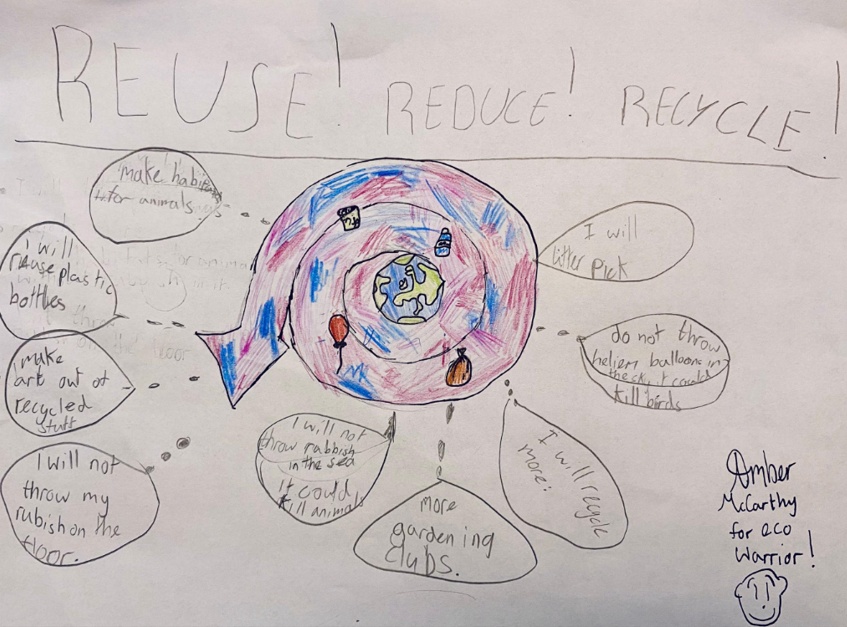 REUSE! REDUCE! RECYCLE!
make habitats
for animals.
I will
reuse plastic
bottles
make
art out of
recycled
stuff
I will not
throw my
rubish on the
floor.
I will not
throw rubbish
in the sea
it could
kill animals
more
gardening
clubs.
I will recycle
more.
do not throw
heliem balloons in
the sky it could
kill birds
I will
litter pick
Amber
McCarthy
for eco
warrior!